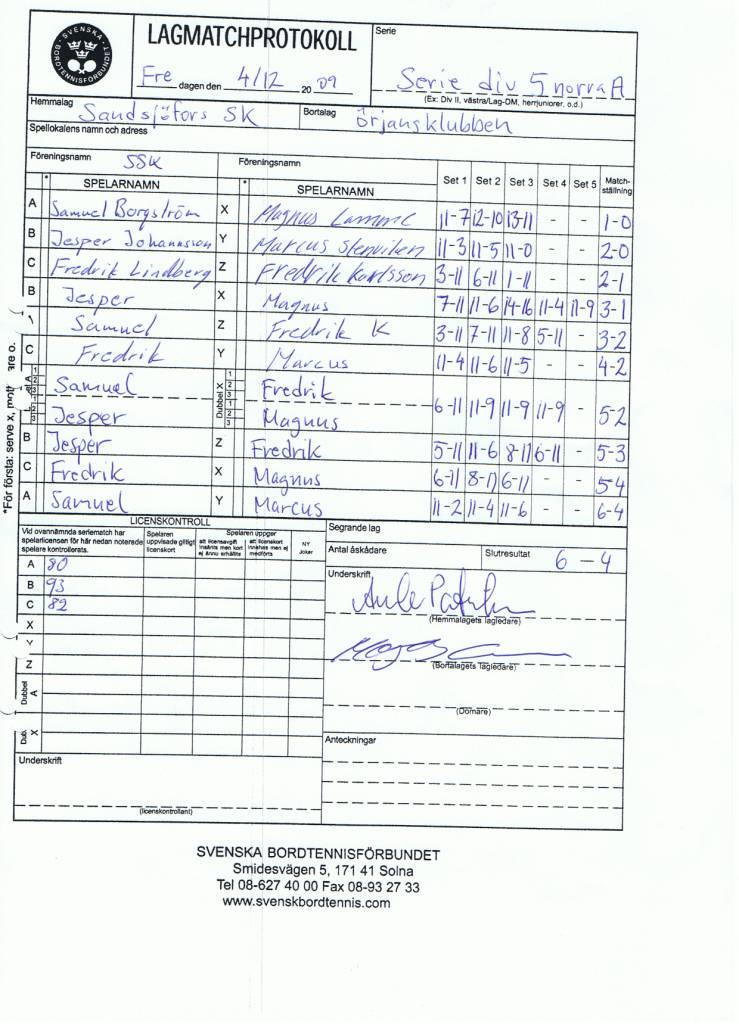 SVENSKA BORDTENNISFÖRBUNDET
LAGMATCHPROTOKOLL
Serie
Fre dagen den 4/12 2009
Serie div 5 norra A
(Ex: Div II, västra/Lag-DM, herrjuniorer, o.d.)
Hemmalag Sandsjöfors SK Bortalag Örjansklubben
Spellokalens namn och adress
Föreningsnamn SSK Föreningsnamn
* SPELARNAMN * SPELARNAMN Set 1 Set 2 Set 3 Set 4 Set 5 Match-ställning
A Samuel Borgström X Magnus 11-7 12-10 13-11 - - 1-0
B Jesper Johannsson Y Marcus Stenviken 11-3 11-5 11-0 - - 2-0
C Fredrik Lindberg Z Fredrik Karlsson 3-11 6-11 1-11 - - 2-1
B Jesper X Magnus 7-11 11-6 14-16 11-4 11-9 3-1
Samuel Z Fredrik K 3-11 7-11 11-8 5-11 - 3-2
C Fredrik Y Marcus 11-4 11-6 11-5 - - 4-2
1 2 3 Samuel X 1 2 3 Fredrik
Dubbel 6-11 11-9 11-9 11-9 - 5-2
1 2 3 Jesper 1 2 3 Magnus
B Jesper Z Fredrik 5-11 11-6 8-11 6-11 - 5-3
C Fredrik X Magnus 6-11 8-11 6-11 - - 5-4
A Samuel Y Marcus 11-2 11-4 11-6 - - 6-4
*För första: serve x, mott are o.
LICENSKONTROLL
Vid ovannämnda seriematch har
spelarlicensen för här nedan noterade
spelare kontrollerats.
Spelaren
uppvisade giltigt
licenskort
Spelaren uppger
att licensavgift
insänts men kort
ej ännu erhållits
att licenskort
innehas men ej
medförts
NY
Joker
A 80
B 93
C 82
X
Y
Z
Dubbel A
Dub. X
Underskrift
(licenskontrollant)
Segrande lag
Antal åskådare Slutresultat 6-4
Underskrift
(Hemmalagets lagledare)
(Bortalagets lagledare)
(Domare)
Anteckningar
SVENSKA BORDTENNISFÖRBUNDET
Smidesvägen 5, 171 41 Solna
Tel 08-627 40 00 Fax 08-93 27 33
www.svenskbordtennis.com